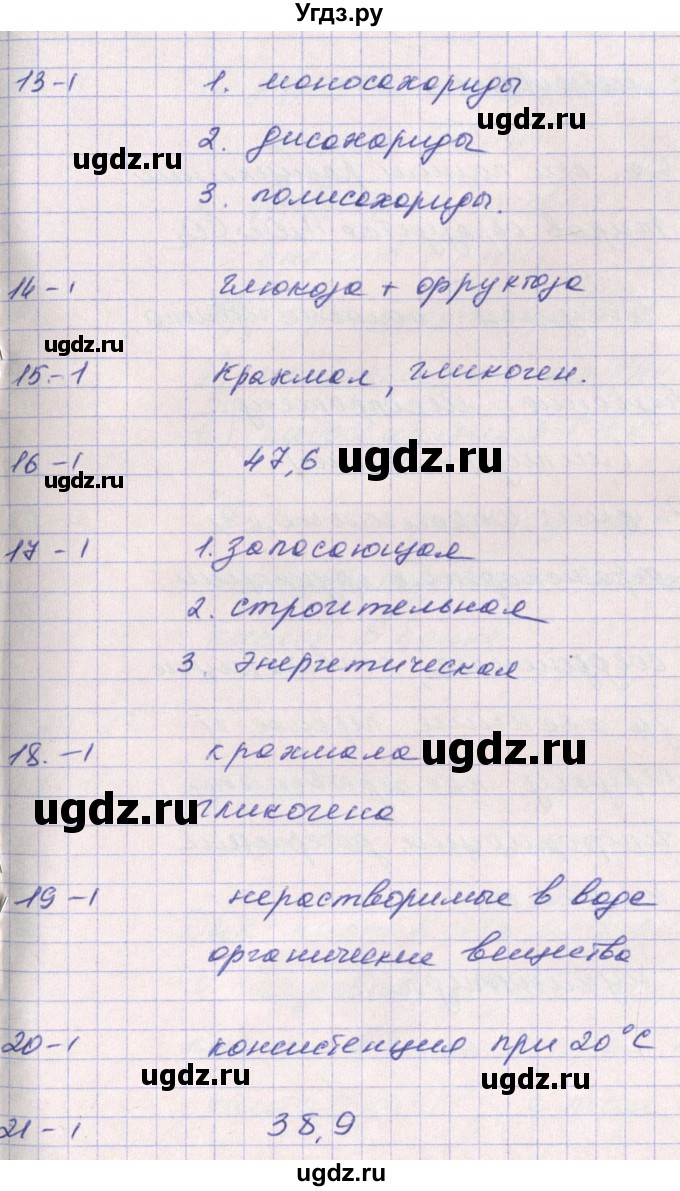 Угдз.ру
13-1 1. моносахориды
ugdz.ru
2. дисахориды
ugdz.ru
3. полисахориды.
14-1 глюкоза + фруктоза
ugdz.ru
15.-1 Крахмал, гликоген.
16-1 47,6 ugdz.ru
ugdz.ru
17-1 1. Запасающая
2. строительная
3. Энергетическая
18.-1 крахмала ugdz.ru
ugdz.ru гликогена
19-1 нерастворимые в воде
органические вещества
20-1 консистенция при 20°С
ugdz.ru ugdz.ru
21-1 38,9
ugdz.ru